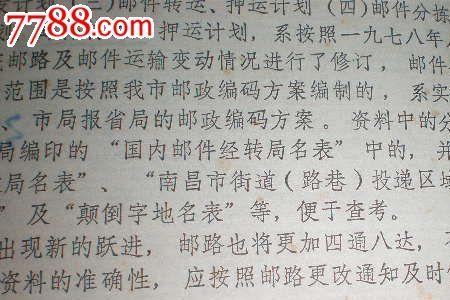 7788.com
计划 (二)邮件转运、押运计划 (四)邮件分拣
押运计划, 系按照一九七八年
邮路及邮件运输变动情况进行了修订, 邮件
范围是按照我市邮政编码方案编制的, 系实
、市局报省局的邮政编码方案。 资料中的分
局编印的 “国内邮件经转局名表” 中的, 并
局名表”、 “南昌市街道(路巷)投递区域
” 及“颠倒字地名表” 等, 便于查考。
出现新的跃进, 邮路也将更加四通八达,
资料的准确性, 应按照邮路更改通知及时